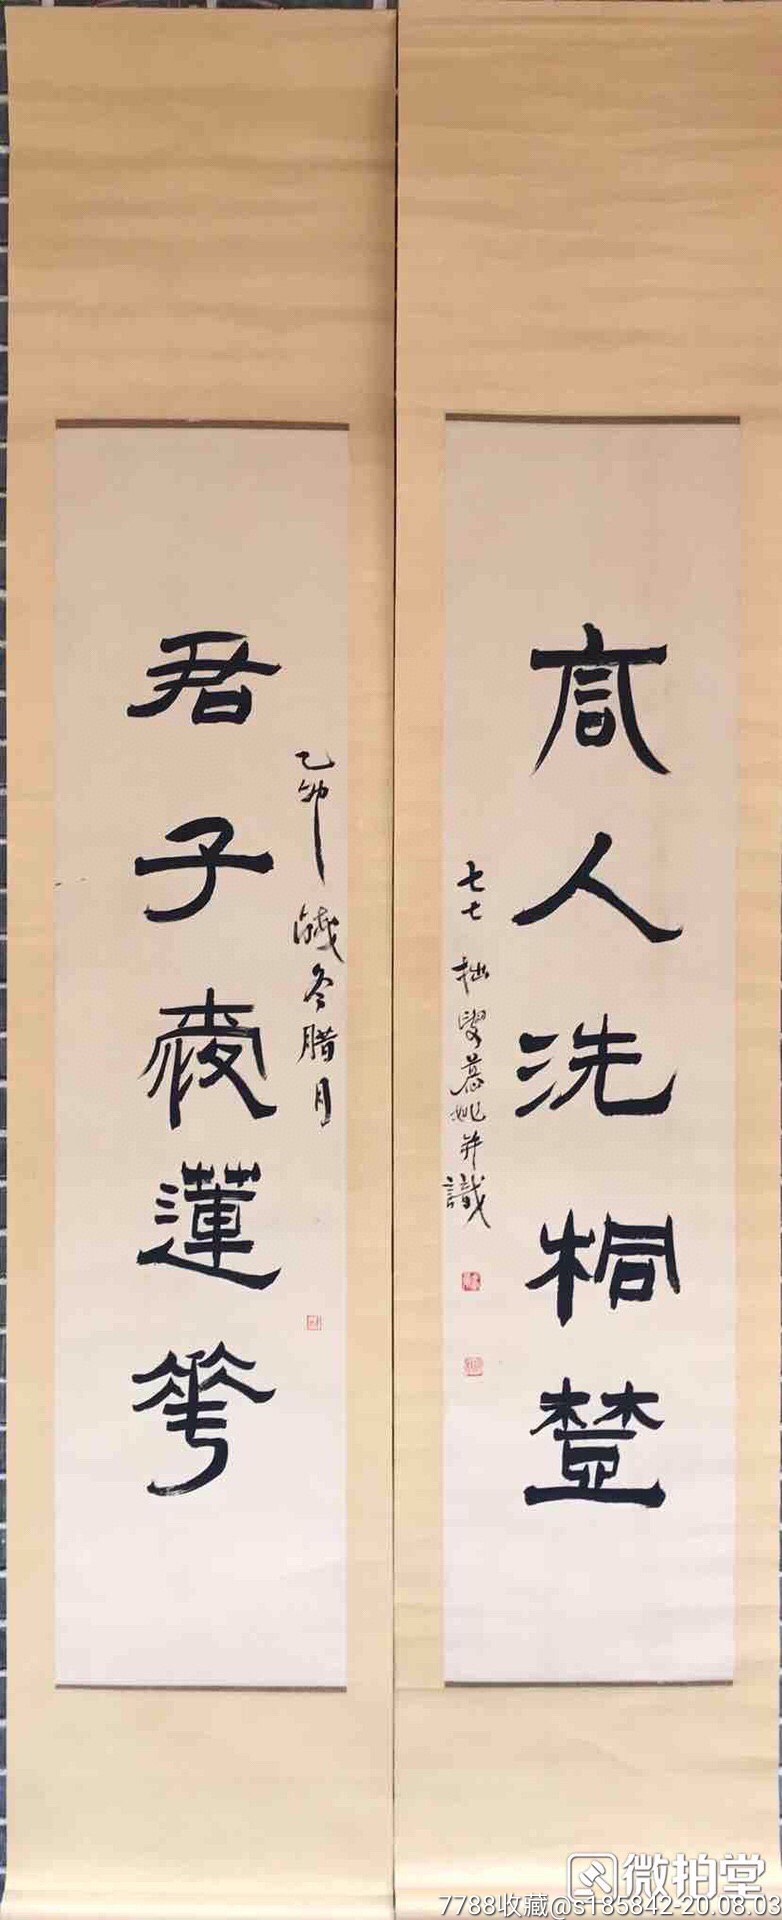 高人洗桐樹
七七 拙叟慕姚并識
君子愛蓮華
乙卯 殘冬腊月
微拍堂
7788收藏@s185842-20.08.03